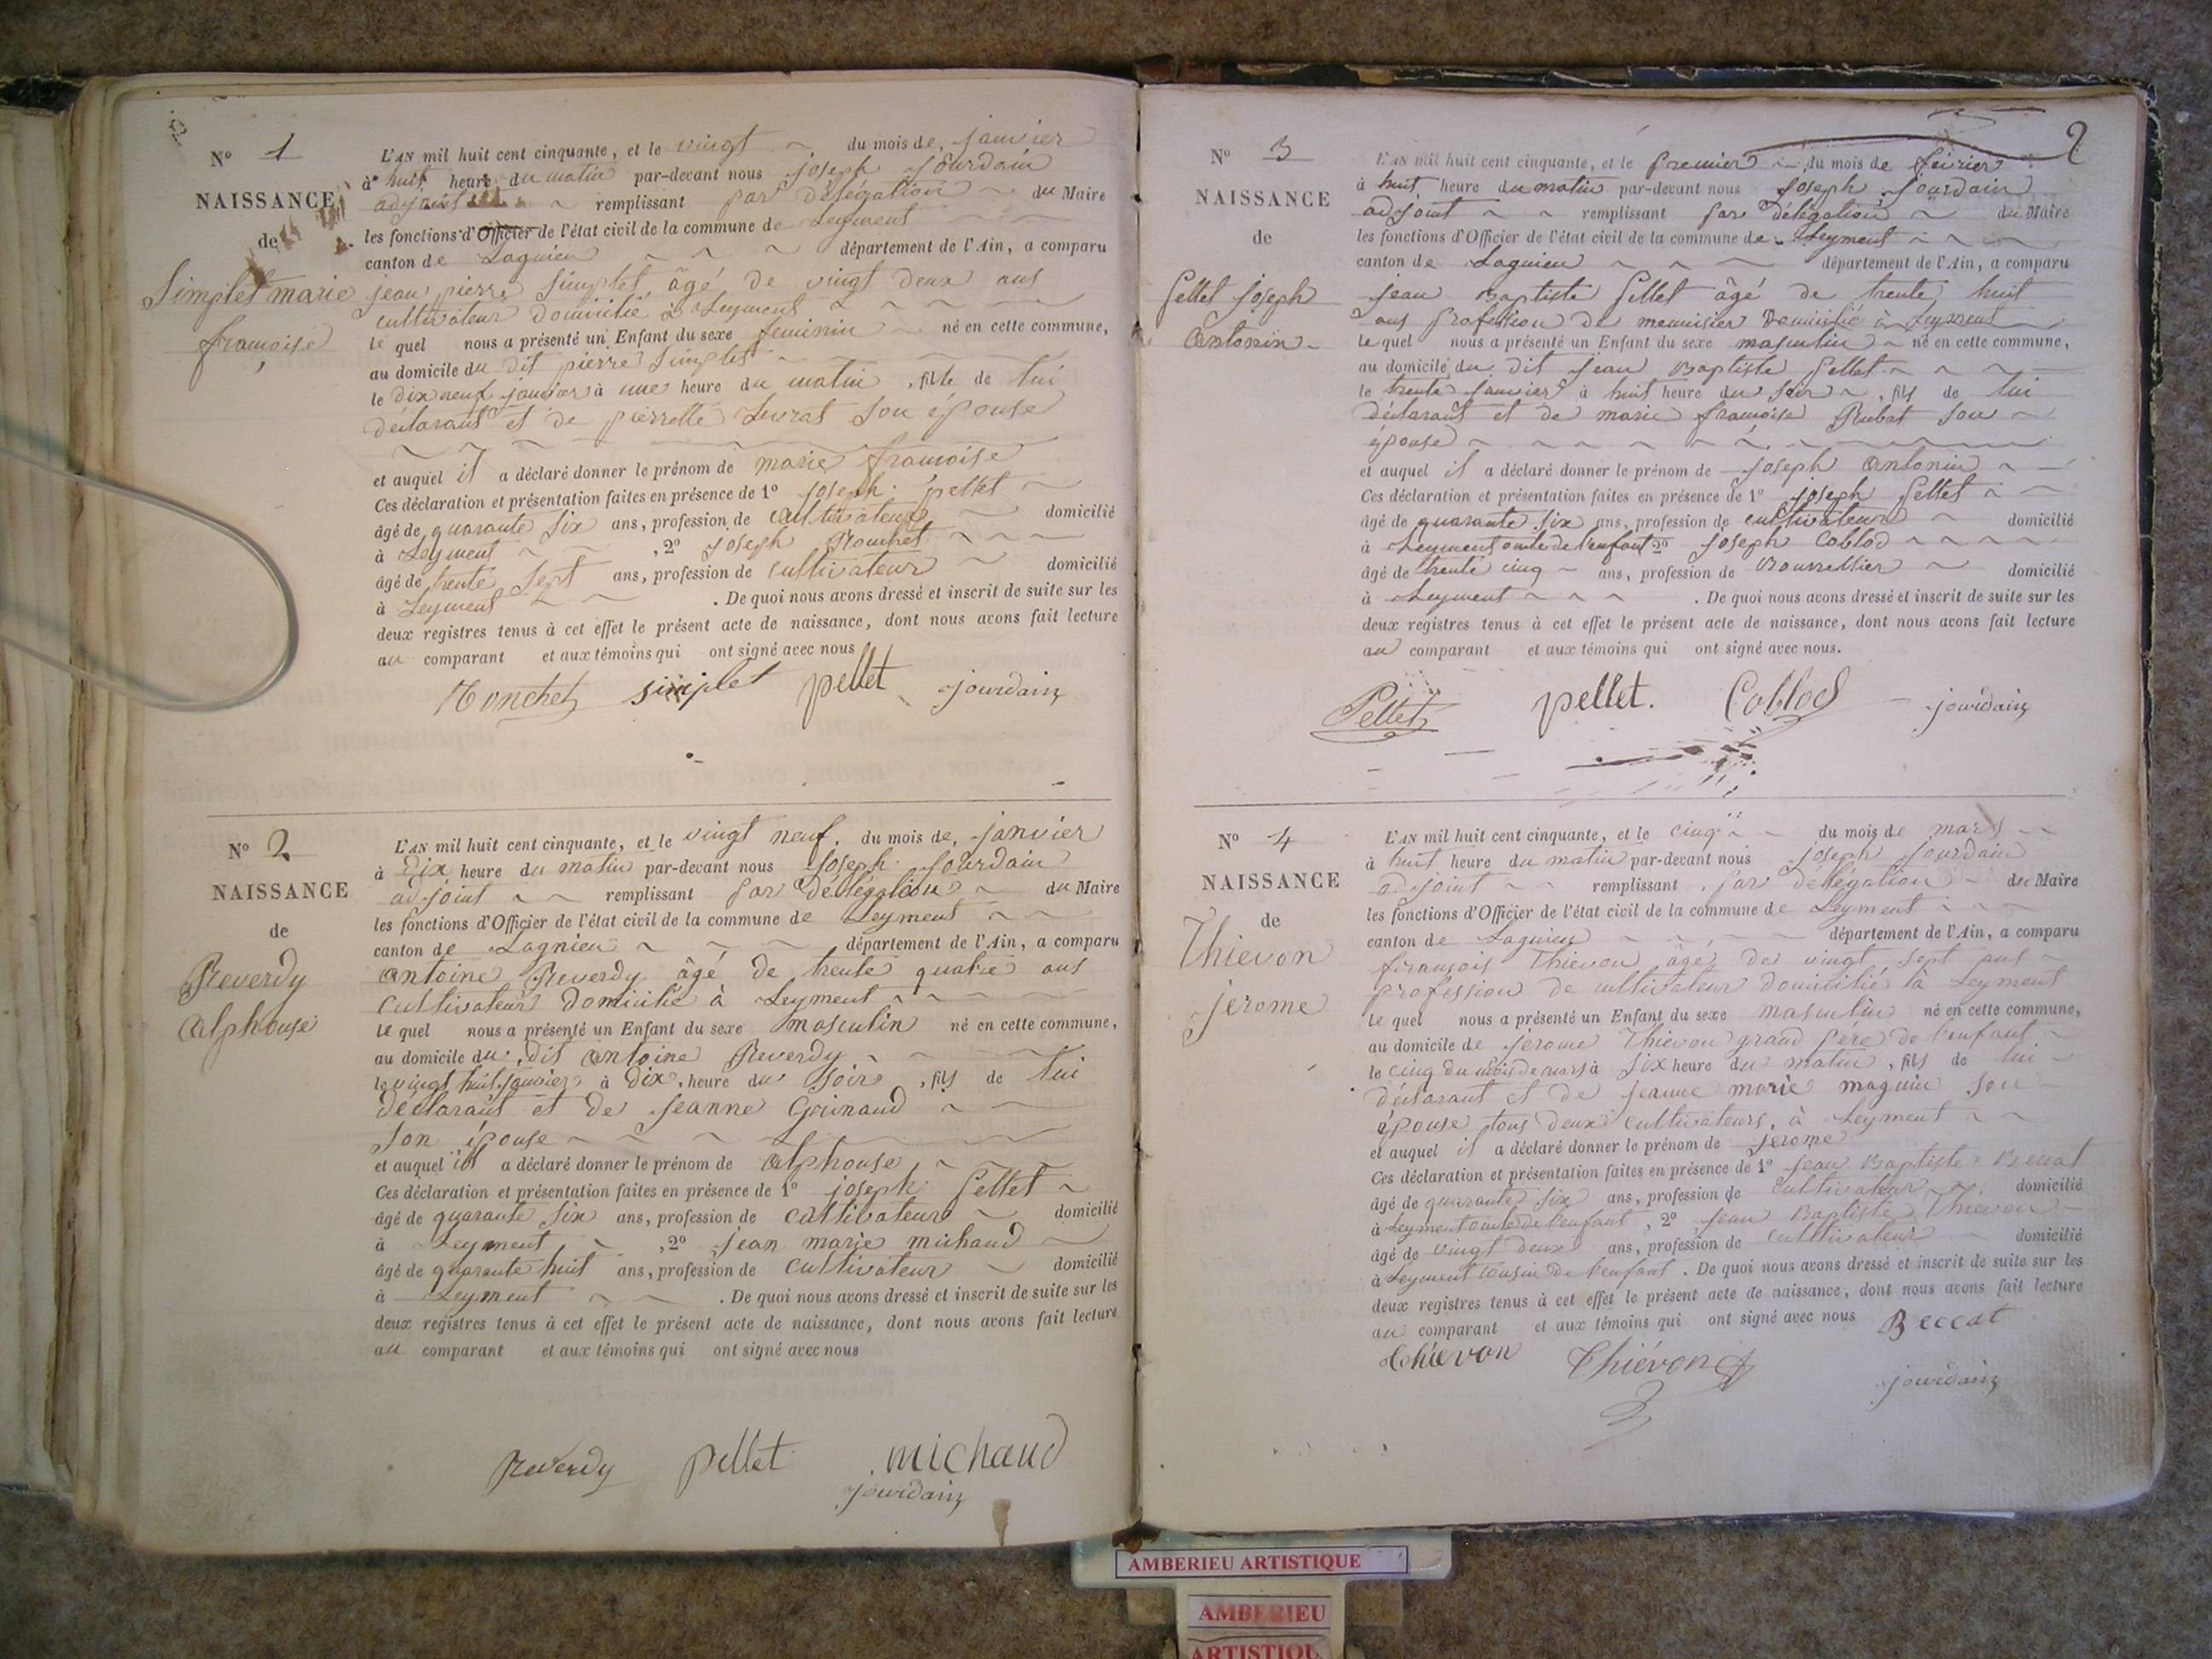 N° 1
NAISSANCE
de
Simplet marie
françoise
L'AN mil huit cent cinquante, et le vingt du mois de janvier
à huit heure du matin par-devant nous joseph jourdain
adjoint remplissant par délégation du Maire
les fonctions d'Officier de l'état civil de la commune de Leyment
canton de Lagnieu département de l'Ain, a comparu
jean pierre Simplet âgé de vingt deux ans
cultivateur domicilié à Leyment
le quel nous a présenté un Enfant du sexe feminin né en cette commune,
au domicile du dit pierre Simplet
le dix neuf janvier à une heure du matin, fille de lui
déclarant et de pierrette Levrat son épouse
et auquel il a déclaré donner le prénom de marie françoise
Ces déclaration et présentation faites en présence de 1° joseph pellet
âgé de quarante six ans, profession de cultivateur domicilié
à Leyment, 2° joseph
âgé de trente sept ans, profession de cultivateur domicilié
à Leyment. De quoi nous avons dressé et inscrit de suite sur les
deux registres tenus à cet effet le présent acte de naissance, dont nous avons fait lecture
au comparant et aux témoins qui ont signé avec nous
simplet pellet jourdain
N° 2
NAISSANCE
de
Reverdy
Alphonse
L'AN mil huit cent cinquante, et le vingt neuf du mois de janvier
à Dix heure du matin par-devant nous joseph jourdain
adjoint remplissant par délégation du Maire
les fonctions d'Officier de l'état civil de la commune de Leyment
canton de Lagnieu département de l'Ain, a comparu
Antoine Reverdy âgé de trente quatre ans
cultivateur domicilié à Leyment
le quel nous a présenté un Enfant du sexe masculin né en cette commune,
au domicile du dit antoine Reverdy
le vingt huit janvier à Dix heure du soir, fils de lui
déclarant et de jeanne Grinaud
son épouse
et auquel il a déclaré donner le prénom de Alphonse
Ces déclaration et présentation faites en présence de 1° joseph Pellet
âgé de quarante six ans, profession de cultivateur domicilié
à Leyment, 2° jean marie michaud
âgé de quarante huit ans, profession de cultivateur domicilié
à Leyment. De quoi nous avons dressé et inscrit de suite sur les
deux registres tenus à cet effet le présent acte de naissance, dont nous avons fait lecture
au comparant et aux témoins qui ont signé avec nous
Reverdy pellet michaud
jourdain
2
N° 3
NAISSANCE
de
Pellet joseph
Antonin
L'AN mil huit cent cinquante, et le premier du mois de février
à huit heure du matin par-devant nous joseph jourdain
adjoint remplissant par délégation du Maire
les fonctions d'Officier de l'état civil de la commune de Leyment
canton de Lagnieu département de l'Ain, a comparu
jean Baptiste Pellet âgé de trente huit
ans profession de menuisier domicilié à Leyment
le quel nous a présenté un Enfant du sexe masculin né en cette commune,
au domicile du dit jean Baptiste Pellet
le trente janvier à huit heure du soir, fils de lui
déclarant et de marie françoise Rubat son
épouse
et auquel il a déclaré donner le prénom de joseph Antonin
Ces déclaration et présentation faites en présence de 1° joseph Pellet
âgé de quarante six ans, profession de cultivateur domicilié
à Leyment oncle de l'enfant 2° joseph Coblod
âgé de trente cinq ans, profession de Bourrellier domicilié
à Leyment. De quoi nous avons dressé et inscrit de suite sur les
deux registres tenus à cet effet le présent acte de naissance, dont nous avons fait lecture
au comparant et aux témoins qui ont signé avec nous.
Pellet pellet. Coblod jourdain
N° 4
NAISSANCE
de
Thievon
jerome
L'AN mil huit cent cinquante, et le cinq du mois de mars
à huit heure du matin par-devant nous joseph jourdain
adjoint remplissant par délégation du Maire
les fonctions d'Officier de l'état civil de la commune de Leyment
canton de Lagnieu département de l'Ain, a comparu
françois Thievon âgé de vingt sept ans
profession de cultivateur domicilié à Leyment
le quel nous a présenté un Enfant du sexe masculin né en cette commune,
au domicile de jerome Thievon grand père de l'enfant
le cinq du mois de mars à six heure du matin, fils de lui
déclarant et de jeanne marie magnin son
épouse tous deux cultivateurs, à Leyment
et auquel il a déclaré donner le prénom de jerome
Ces déclaration et présentation faites en présence de 1° jean Baptiste Beccat
âgé de quarante six ans, profession de cultivateur domicilié
à Leyment oncle de l'enfant, 2° jean Baptiste Thievon
âgé de vingt deux ans, profession de cultivateur domicilié
à Leyment cousin de l'enfant. De quoi nous avons dressé et inscrit de suite sur les
deux registres tenus à cet effet le présent acte de naissance, dont nous avons fait lecture
au comparant et aux témoins qui ont signé avec nous Beccat
Thievon Thiévon
jourdain
AMBERIEU ARTISTIQUE
AMBERIEU
ARTISTIQU